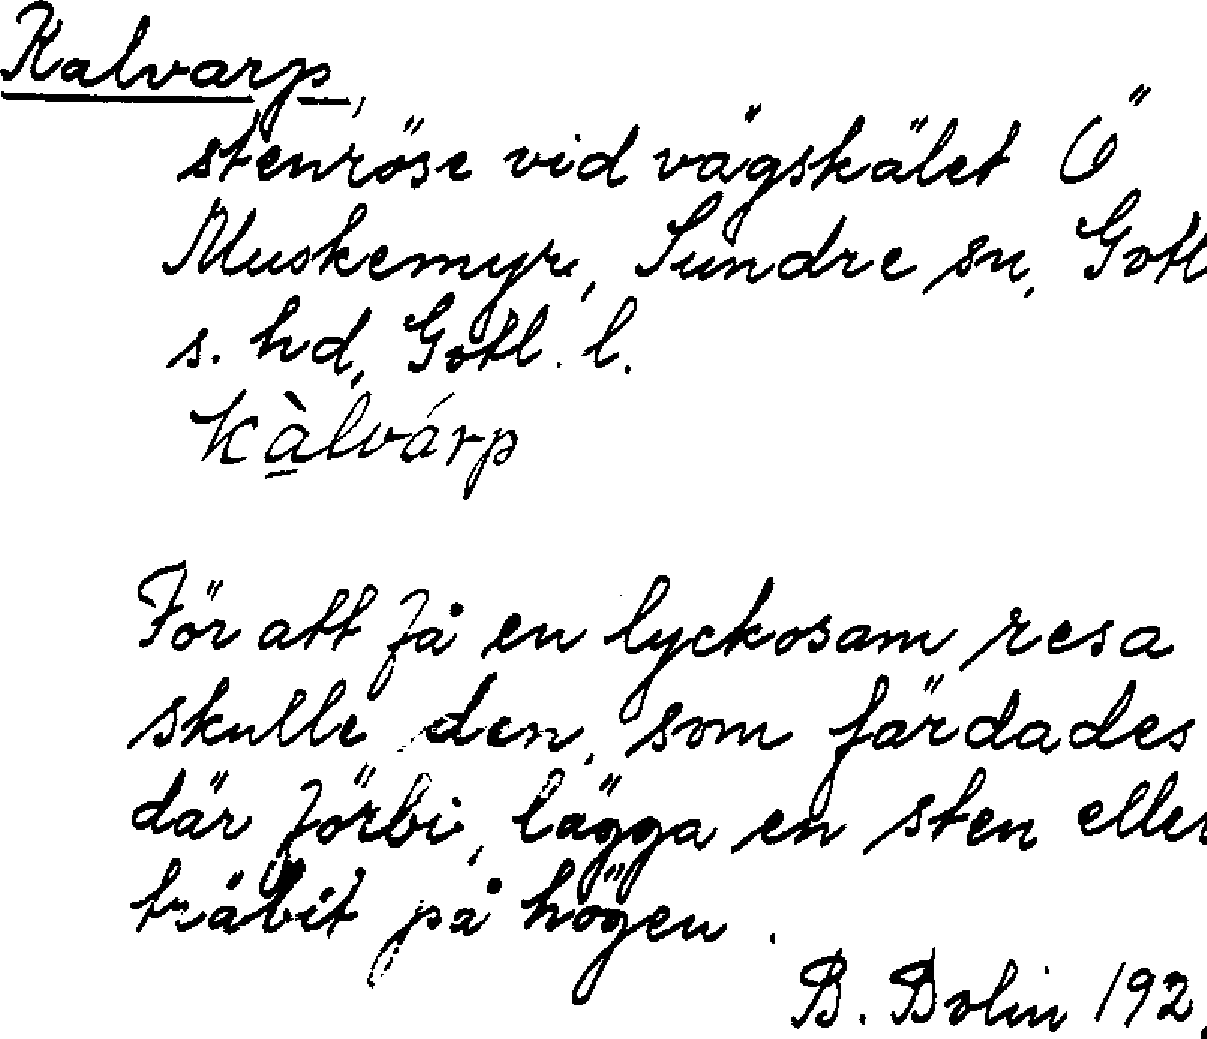 Kalvarp,
stenröse vid vägskälet Ö
Muskemyr, Sundre sn, Gotl
s. hd, Gotl. l.
kàlvárp
För att få en lyckosam resa
skulle den, som färdades
där förbi, lägga en sten eller
träbit på högen.
B. Bolin 192